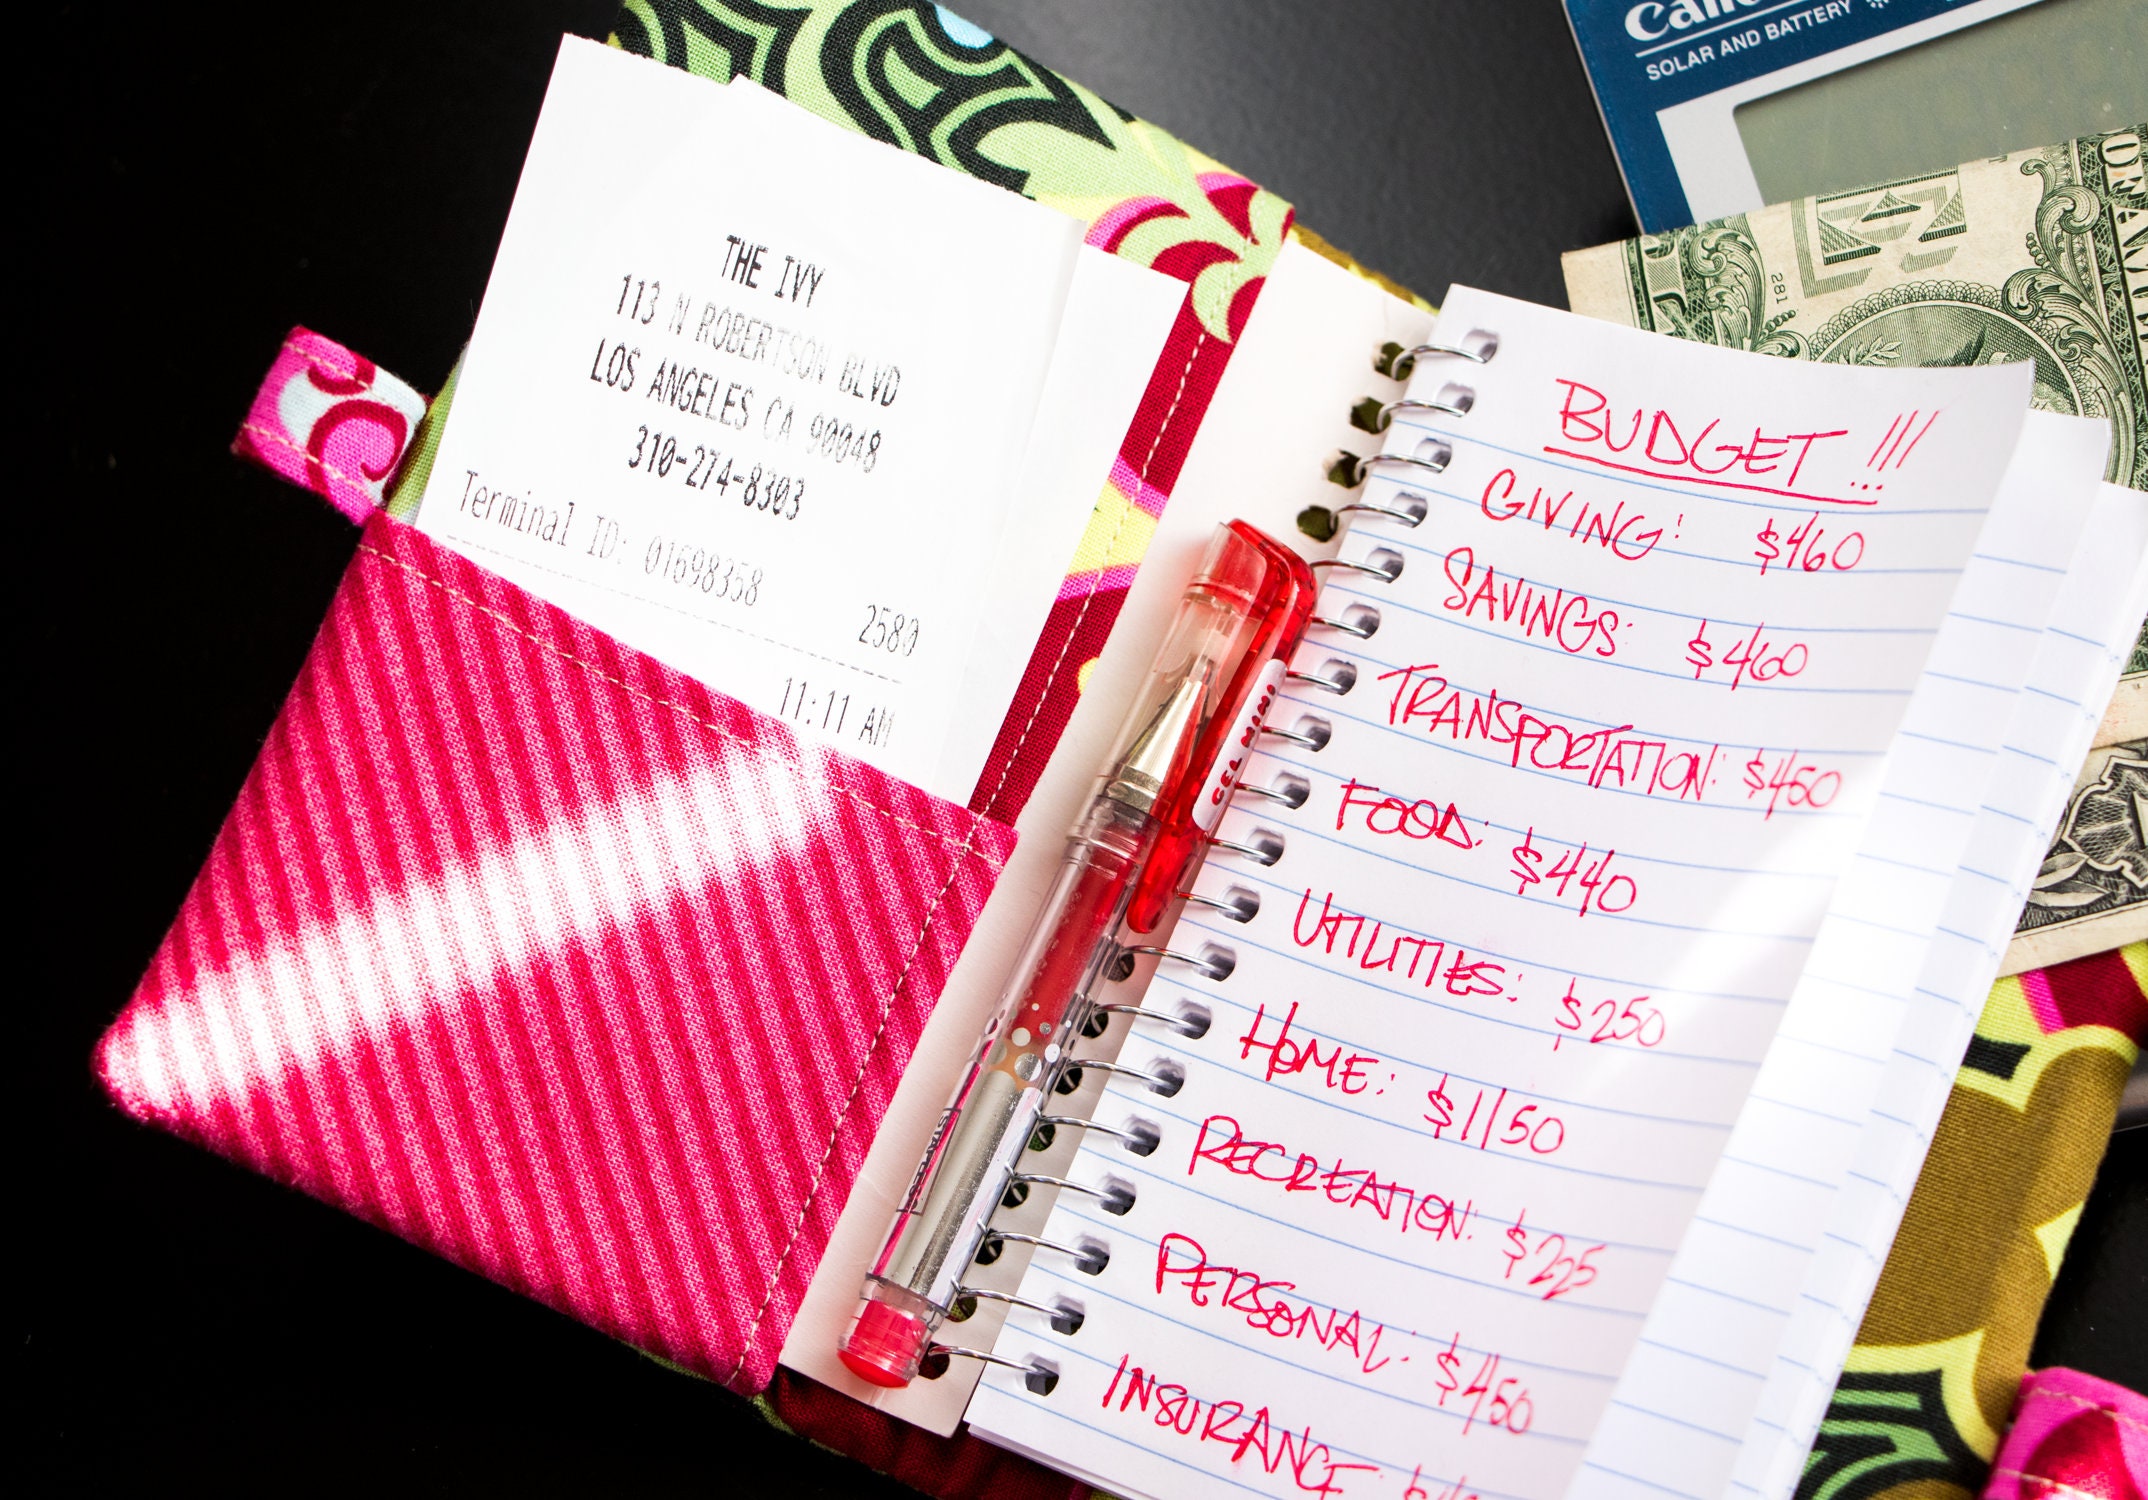 THE IVY
113 N ROBERTSON BLVD
LOS ANGELES CA 90048
310-274-8303
Terminal ID: 01698358
2580
11:11 AM
SOLAR AND BATTERY
281
BUDGET!!!
GIVING: $460
SAVINGS: $460
TRANSPORTATION: $450
FOOD: $440
UTILITIES: $250
HOME: $1150
RECREATION: $225
PERSONAL: $450
INSURANCE
GEL MINI